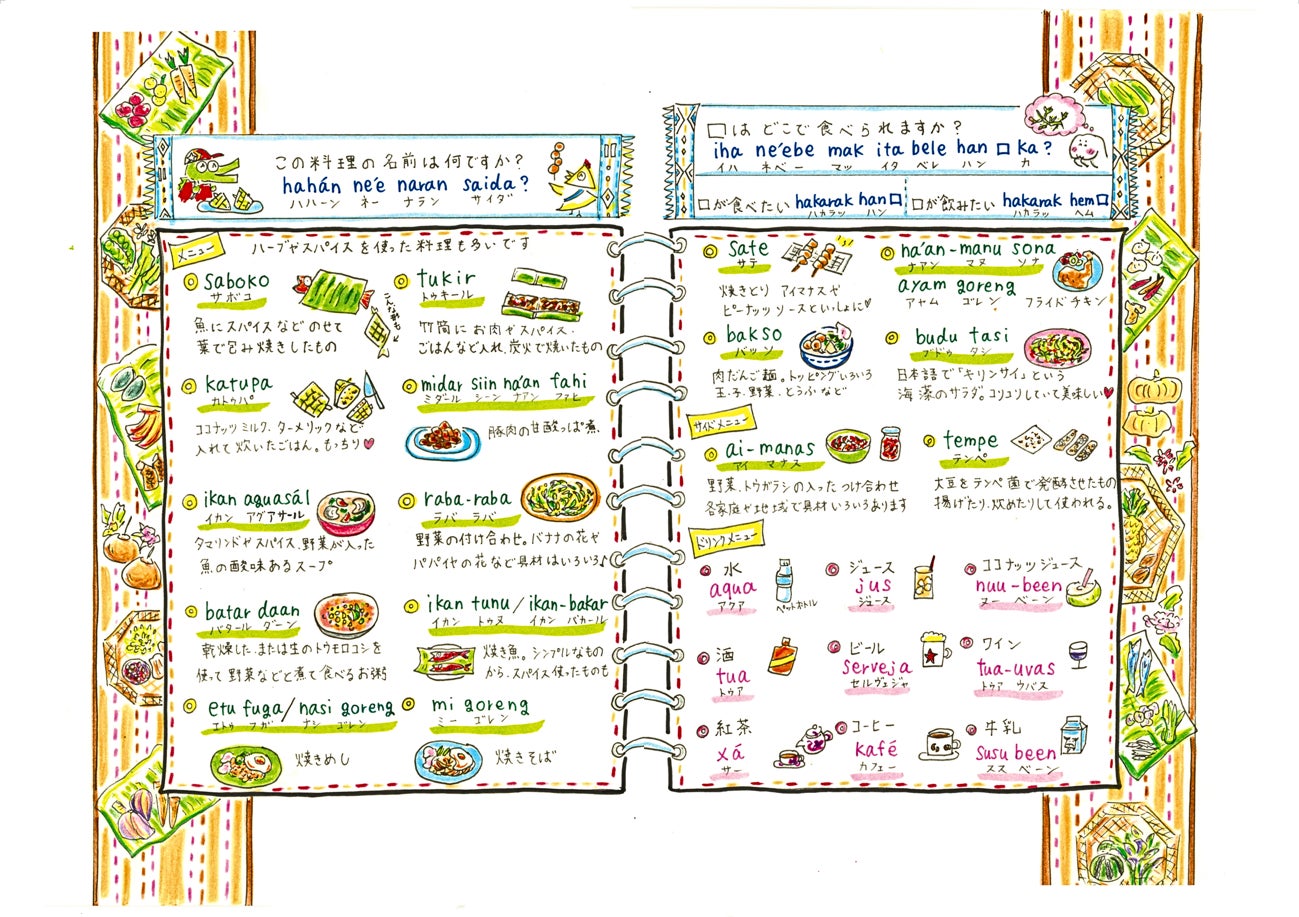 この料理の名前は何ですか?
hahán ne'e naran saida?
ハハーン ネー ナラン サイダ
メニュー
ハーブやスパイスを使った料理も多いです
saboko
サボコ
魚にスパイスなどのせて
葉で包み焼きしたもの
こんな形も
tukir
トゥキール
竹筒にお肉やスパイス・
ごはんなど入れ、炭火で焼いたもの
katupa
カトゥパ
ココナッツミルク、ターメリックなど
入れて炊いたごはん。もっちり♥
midar siin na'an fahi
ミダール シーン ナアン ファヒ
豚肉の甘酸っぱ煮。
ikan aguasál
イカン アグアサール
タマリンドやスパイス、野菜が入った
魚の酸味あるスープ
raba-raba
ラバ ラバ
野菜の付け合わせ。バナナの花や
パパイヤの花など具材はいろいろ♪
batar daan
バタール ダーン
乾燥した、または生のトウモロコシを
使って野菜などと煮て食べるお粥
ikan tunu/ikan-bakar
イカン トゥヌ イカン バカール
焼き魚。シンプルなもの
から、スパイス使ったものも
etu fuga/nasi goreng
エトゥ フガ ナシ ゴレン
焼きめし
mi goreng
ミー ゴレン
焼きそば
□は どこで食べられますか?
iha ne'ebe mak ita bele han □ ka?
イハ ネベー マッ イタ ベレ ハン カ
□が食べたい hakarak han□
ハカラッ ハン
□が飲みたい hakarak hem□
ハカラッ ヘム
sate
サテ
焼きとり アイマナスや
ピーナッツソースといっしょに♥
na'an-manu sona
ナアン マヌ ソナ
ayam goreng
アヤム ゴレン フライドチキン
bakso
バッソ
肉だんご麺。トッピングいろいろ
玉子、野菜、とうふなど
budu tasi
ブドゥ タシ
日本語で「キリンサイ」という
海藻のサラダ。コリコリしていて美味しい♥
サイドメニュー
ai-manas
アイ マナス
野菜、トウガラシの入ったつけ合わせ
各家庭や地域で具材いろいろあります
tempe
テンペ
大豆をテンペ菌で発酵させたもの
揚げたり、炒めたりして使われる。
ドリンクメニュー
水
aqua
アクア
ペットボトル
ジュース
jus
ジュース
ココナッツジュース
nuu-been
ヌー ベーン
酒
tua
トゥア
ビール
serveja
セルヴェジャ
ワイン
tua-uvas
トゥア ウバス
紅茶
xá
サー
コーヒー
kafé
カフェー
牛乳
susu been
スス ベーン